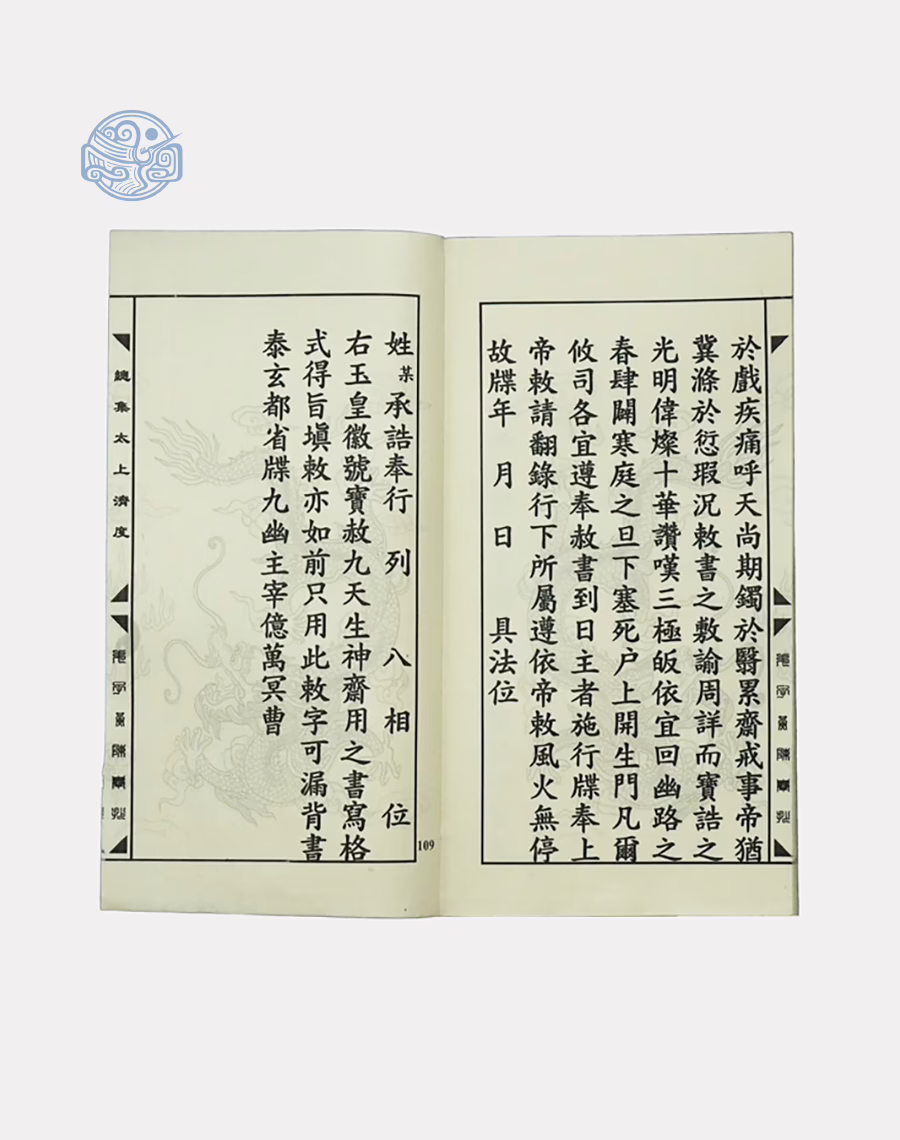 於戲疾痛呼天尚期鐲於翳累齋戒事帝猶
冀滌於愆瑕況敕書之敷諭周詳而寶誥之
光明偉燦十華讚嘆三極皈依宜回幽路之
春肆闢寒庭之旦下塞死户上開生門凡爾
攸司各宜遵奉赦書到日主者施行牒奉上
帝敕請翻錄行下所屬遵依帝敕風火無停
故牒年 月 日 具法位
姓某承誥奉行 列 八 相 位
右玉皇徽號寶赦九天生神齋用之書寫格
式得旨填敕亦如前只用此敕字可漏背書
泰玄都省牒九幽主宰億萬冥曹
109
總集太上濟度